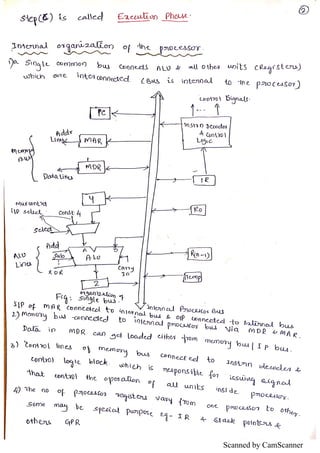 ②
Step(6) is called Execution Phase.
Internal organization of the processor.
1)a Single common bus connects ALU & all other units (Registers)
which are interconnected (Bus is internal to the processor)
control Signals
PC
Instrn Decoder
& control
Logic
Addr
Lines
MAR
Memory
Bus
MDR
Data Lines
IR
Y
R0
const 4
Select
Add
Sub
A
B
ALU
Lines
ALU
XOR
carry
in
R(n-1)
Z
Temp
Internal Processor Bus
Fig: organization of
Single bus.
IIP of MAR connected to internal bus & op connected to External bus
2) Memory bus connected to internal processor bus via MDR & MAR.
Data in MDR can get loaded either from memory bus / I P bus.
3) Control lines of memory bus connected to instrn decoder &
control logic block. which is responsible for issuing signal
that control the operation of all units inside processor.
4) The no of processor registers vary from one processor to other.
some may be special purpose eg- IR & stack pointers &
others GPR
Scanned by CamScanner